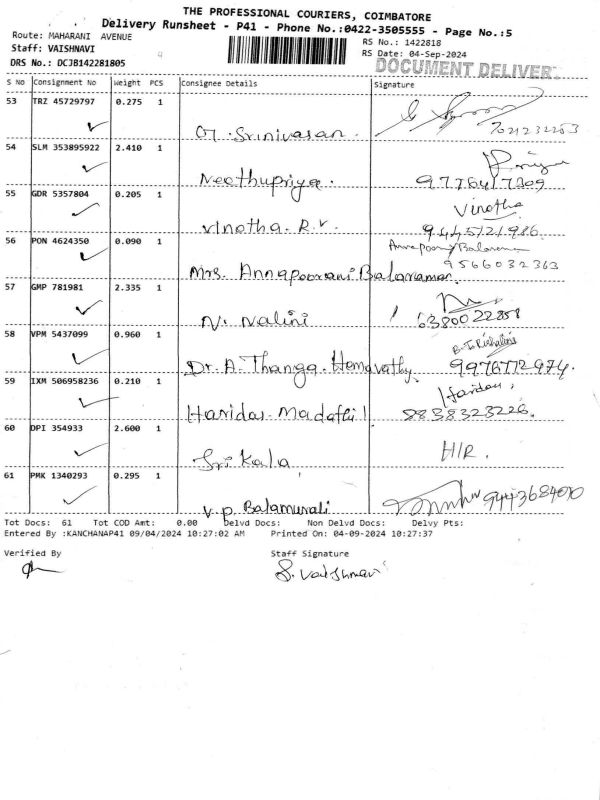 THE PROFESSIONAL COURIERS, COIMBATORE
Delivery Runsheet - P41 - Phone No.:0422-3505555 - Page No.:5
Route: MAHARANI AVENUE
RS No.: 1422818
Staff: VAISHNAVI
RS Date: 04-Sep-2024
DRS No.: DCJB142281805
DOCUMENT DELIVER
S No Consignment No Weight PCS Consignee Details Signature
53 TRZ 45729797 0.275 1
G. Srinivasan
54 SLM 353895922 2.410 1
Neethupriya. 9776417309
55 GDR 5357804 0.205 1 Vinotha
Vinotha. R.V. 9445121986
56 PON 4624350 0.090 1
Mrs. Annapoorani Balaraman 9566032363
57 GMP 781981 2.335 1
N. Nalini 6380022858
58 VPM 5437099 0.960 1
Dr. A. Thanga. Hemavathy. 9976772974.
59 IXM 506958236 0.210 1 Haridas,
Haridas. 8838323226.
60 DPI 354933 2.600 1 H/R.
Sri Kala
61 PMK 1340293 0.295 1
V.P. Balamurali
Tot Docs: 61 Tot COD Amt: 0.00 Delvd Docs: Non Delvd Docs: Delvy Pts:
Entered By :KANCHANAP41 09/04/2024 10:27:02 AM Printed On: 04-09-2024 10:27:37
Verified By Staff Signature
S. Vaishnavi